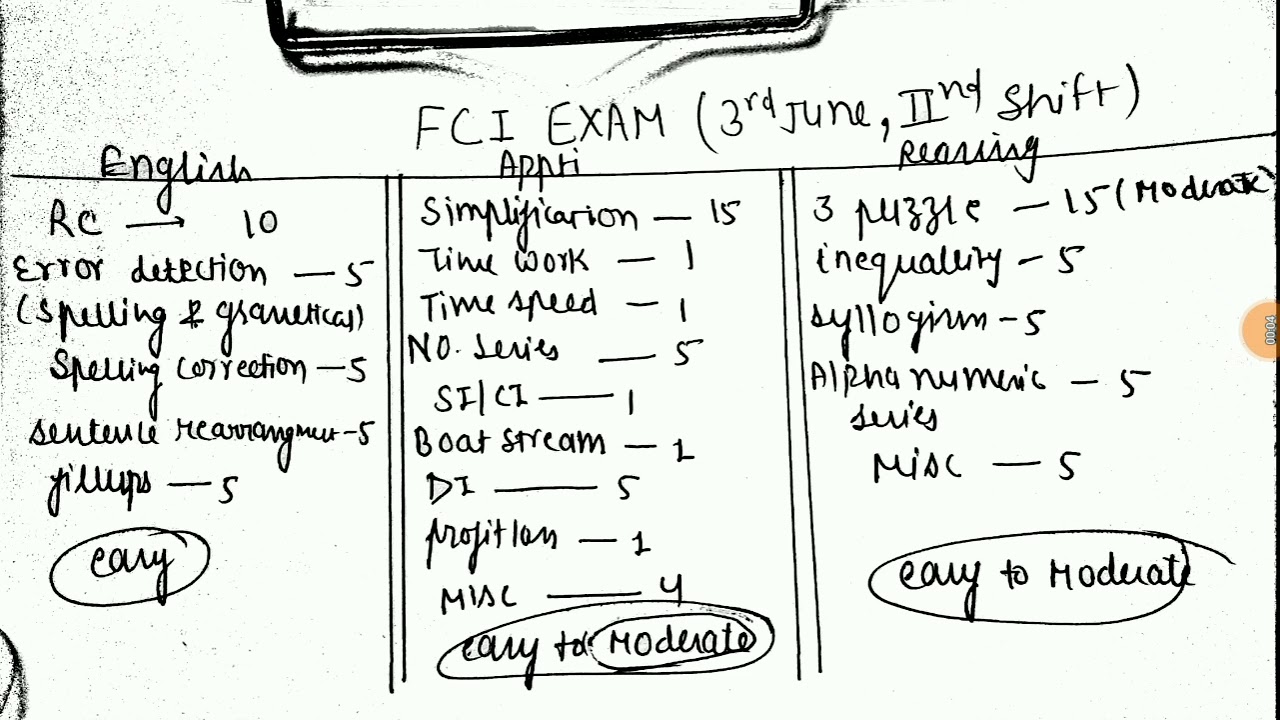 FCI EXAM (3rd June, IInd Shift)
English
RC → 10
Error detection — 5
(Spelling & grametical)
Spelling correction — 5
sentence rearrangmet - 5
fillups — 5
easy
Appti
Simplification — 15
Time work — 1
Time speed — 1
NO. series — 5
SI/CI — 1
Boat stream — 1
DI — 5
profit loss — 1
MISC — 4
easy to Moderate
Reasing
3 puzzle — 15 (Moderate)
inequality - 5
syllogism - 5
Alpha numeric — 5
series
MISC — 5
easy to Moderate
00:04